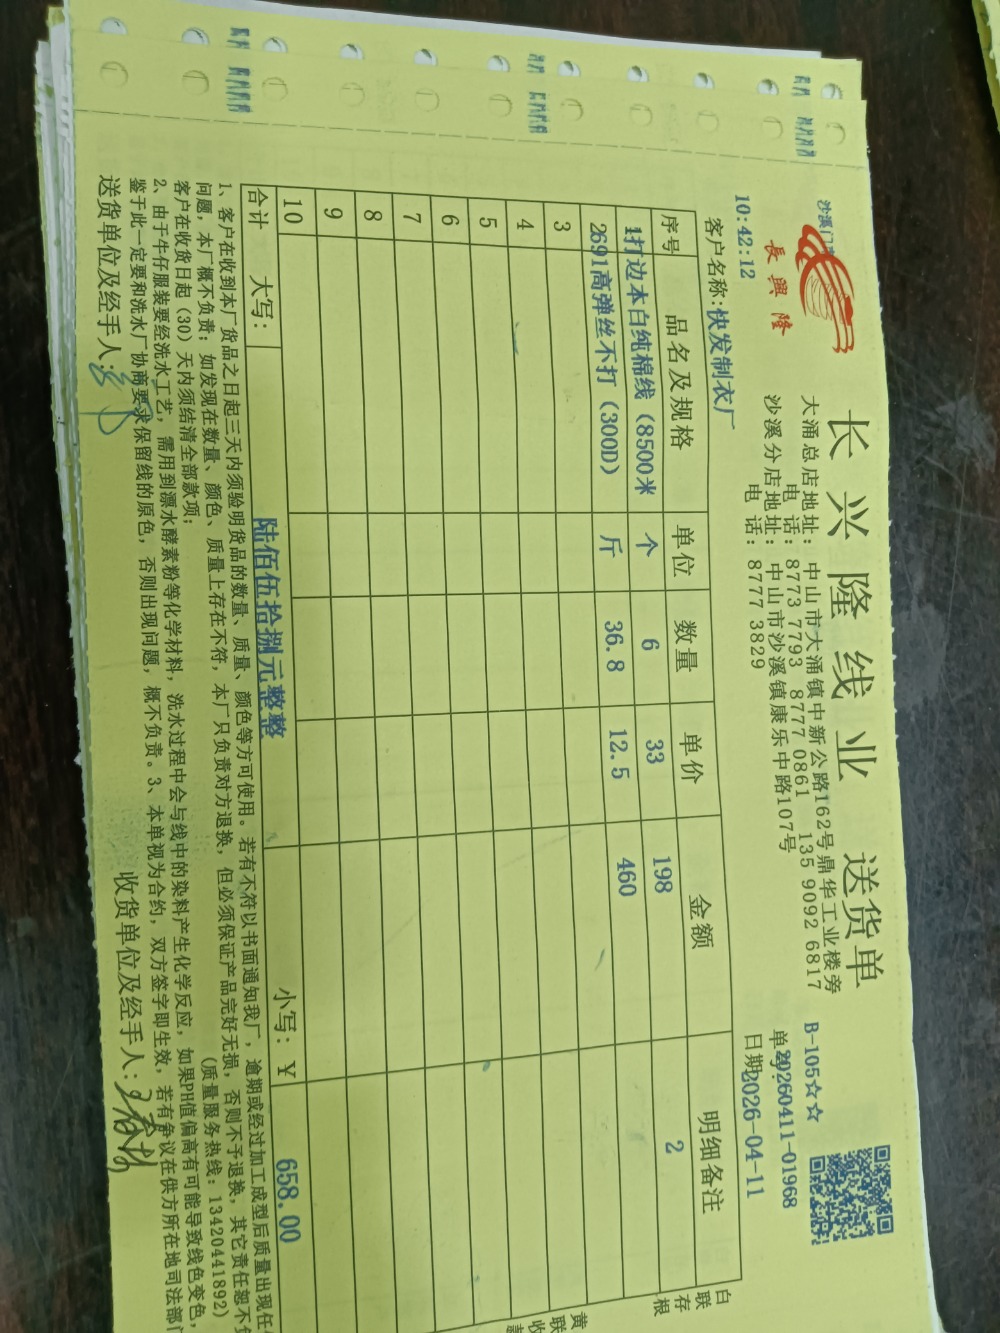 沙溪门
長興隆
长兴隆线业 送货单
大涌总店地址：中山市大涌镇中新公路162号鼎华工业楼旁
电 话：8773 7793 8777 0861 135 9092 6817
沙溪分店地址：中山市沙溪镇康乐中路107号
电 话：8777 3829
B-105☆☆
单号：20260411-01968
日期2026-04-11
10:42:12
客户名称：快发制衣厂
序号 品名及规格 单位 数量 单价 金额 明细备注
1 打边本白纯棉线（8500米 个 6 33 198 2
2 691高弹丝不打（300D） 斤 36.8 12.5 460
3
4
5
6
7
8
9
10
合计 大写： 陆佰伍拾捌元整整 小写：￥ 658.00
白联存根
黄联收
1、客户在收到本厂货品之日起三天内须验明货品的数量、质量、颜色等方可使用。若有不符以书面通知我厂，逾期或经过加工成型后质量出现任
问题，本厂概不负责；如发现在数量、颜色、质量上存在不符，本厂只负责对方退换，但必须保证产品完好无损，否则不予退换，其它责任恕不
客户在收货日起（30）天内须结清全部款项； （质量服务热线：13420441892）
2、由于牛仔服装要经洗水工艺，需用到漂水酵素粉等化学材料，洗水过程中会与线中的染料产生化学反应，如果PH值偏高有可能导致线色变色，
鉴于此一定要和洗水厂协商要求保留线的原色，否则出现问题，概不负责。3、本单视为合约，双方签字即生效，若有争议在供方所在地司法部门
送货单位及经手人： 收货单位及经手人：